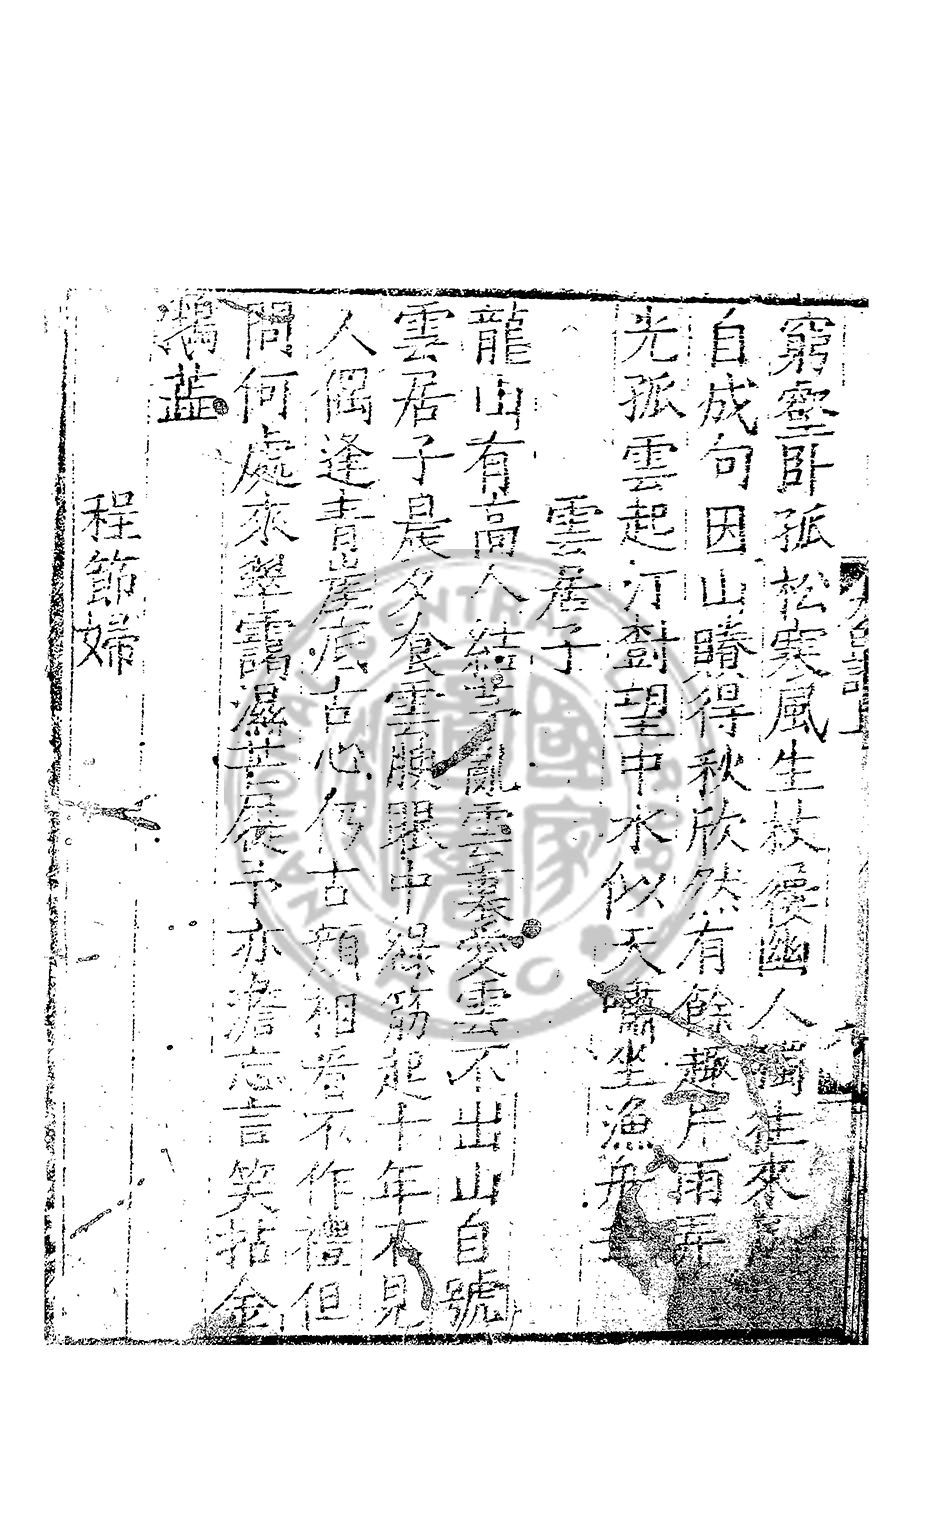 窮壑卧孤松寒風生杖屨幽人獨往來
自成句因山賸得秋欣然有餘趣片雨弄
光孤雲起汀樹望中水似天嘯坐漁舟
雲居子
龍山有高人結茅亂雲裏愛雲不出山自號
雲居子晨夕飧雲腴眼中綠筋起十年不見
人偶逢青崖底古心仍古顏相看不作禮但
問何處來翠靄濕芒屨予亦澹忘言笑拈金
鴉蓝
程節婦